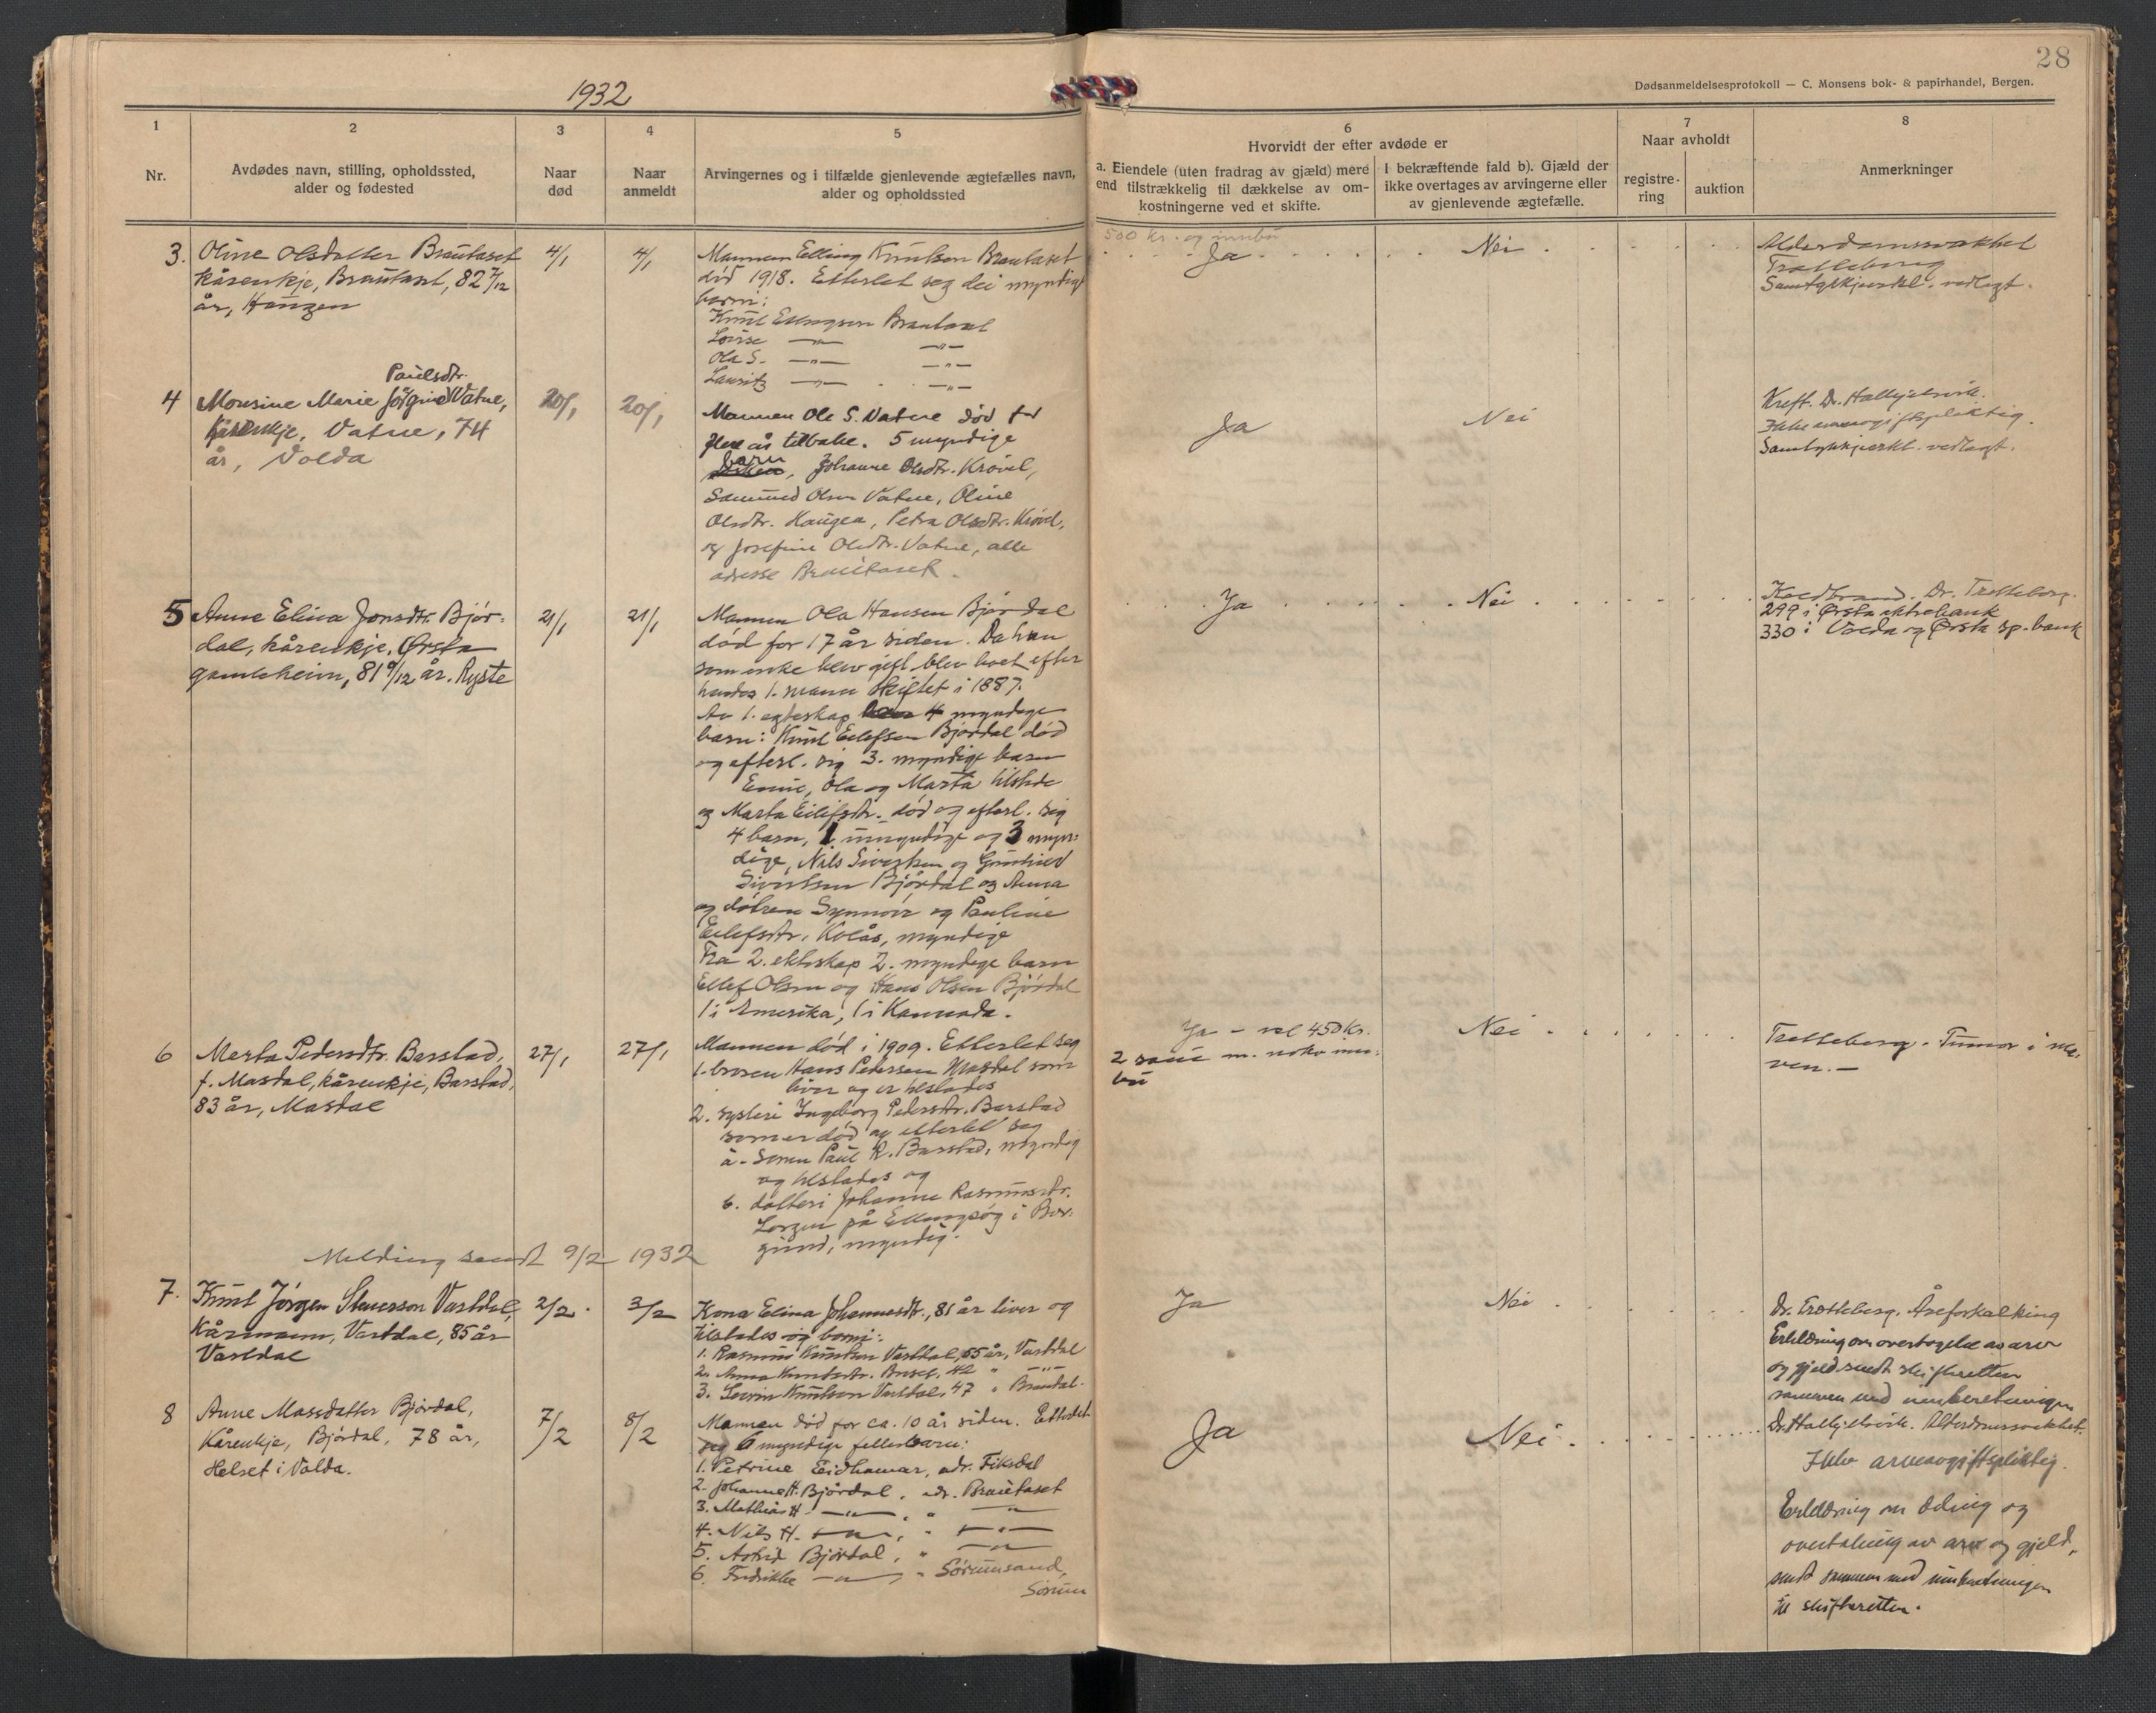 1932
28
Dødsanmeldelsesprotokoll — C. Monsens bok- & papirhandel, Bergen.
1
Nr.
2
Avdødes navn, stilling, opholdssted,
alder og fødested
3
Naar
død
4
Naar
anmeldt
5
Arvingernes og i tilfælde gjenlevende ægtefælles navn,
alder og opholdssted
6
Hvorvidt der efter avdøde er
a. Eiendele (uten fradrag av gjæld) mere
end tilstrækkelig til dækkelse av om-
kostningerne ved et skifte.
I bekræftende fald b). Gjæld der
ikke overtages av arvingerne eller
av gjenlevende ægtefælle.
7
Naar avholdt
registre-
ring
auktion
8
Anmerkninger
3.
Oline Olsdatter Brautaset
kårenkje, Brautaset, 82 7/12
år, Haugen
4/1
4/1
Mannen Elling Knutsen Brautaset
død 1918. Etterlet seg dei myndige
borni:
Knut Ellingsen Brautaset
Lovise —"— —"—
Ola S. —"— —"—
Lauritz —"— —"—
500 kr. og innbu
Ja
Nei
Alderdomssvakhet
Trolleberg
Samtykkjeerkl. vedlagt.
4
Paulsdtr.
Monsine Marie Jørgine Vatne,
kårenkje, Vatne, 74
år, Volda
20/1
20/1
Mannen Ole S. Vatne død for
flere år tilbake. 5 myndige
barn, Johanne Olsdtr. Krøvel,
Samund Olsen Vatne, Oline
Olsdtr. Haugen, Petra Olsdtr. Krøvel,
og Josefine Olsdtr. Vatne, alle
adresse Brautaset.
Ja
Nei
Kreft. Dr. Halkjelsvik.
Ikke arveavgiftspliktig.
Samtykkjeerkl. vedlagt.
5
Anne Elina Jonsdtr. Bjør-
dal, kårenkje, Ørsta
gamleheim, 81 9/12 år. Ryste
21/1
21/1
Mannen Ola Hansen Bjørdal
død for 17 år siden. Da hun
som enke blev gift blev boet efter
hendes 1. mann skiftet i 1887.
Av 1. egteskap 4 myndige
barn: Knut Eilefsen Bjørdal død
og efterl. sig 3. myndige barn
Emie, Ola og Marta tilstede
og Marta Eilifsdtr. død og efterl. sig
4 barn, 1 umyndige og 3 myn-
dige, Nils Sivertsen og Gunhild
Sivertsen Bjørdal og Anna
og døtrene Synnøve og Pauline
Eilefsdtr. Kolås, myndige
Fra 2. ekteskap 2. myndige barn
Ellef Olsen og Hans Olsen Bjørdal
1 i Amerika, 1 i Kannada.
Ja
Nei
Koldbrand. Dr. Trolleberg.
299 i Ørsta aktiebank
330 i Volda og Ørsta sp.bank
6
Marta Pedersdtr. Barstad,
f. Masdal, kårenkje, Barstad,
83 år, Masdal
27/1
27/1
Mannen død i 1909. Etterlet seg
1. broren Hans Pedersen Masdal som
liver og er tilstades
2. systeri Ingeborg Pedersdtr. Barstad
som er død og etterlet seg
a. Sonen Paul R. Barstad, myndig
og tilstades og
b. dotteri Johanne Rasmusdtr.
på Ellingsøy i Bor-
gund, myndig.
Ja – vel 450 kr.
2 m. noko inn-
bu
Nei
Trolleberg. Tumor i ma-
ven. —
Melding sendt 9/2 1932
7.
Knut Jørgen Steversson Vartdal,
kårmann, Vartdal, 85 år
Vartdal
2/2
3/2
Kona Elina Johannesdtr., 81 år liver og
tilstades og borni:
1. Rasmus Knutsen Vartdal, 55 år, Vartdal
2. Anna Knutsdtr. 42 " —"—
3. Severin Knutsen Vartdal, 47 " Brandal.
Ja
Nei
Dr. Trolleberg. Åreforkalking
Erklæring om overtagelse av arv
og gjeld sendt skifteretten
sammen med innberetningen
8
Anne Massdatter Bjørdal,
Kårenkje, Bjørdal, 78 år,
Helset i Volda.
7/2
8/2
Mannen død for ca. 10 år siden. Etterlet
seg 6 myndige fellesbarn:
1. Petrine Eidhamar, adr. Fiksdal
2. Johanne H. Bjørdal, adr. Brautaset
3. Mathias H. —"—, " —"—
4. Nils H. —"—, " —"—
5. Astrid Bjørdal, " —"—
6. Fredrikke —"—, " Sørumsand,
Sørum
Ja
Nei
Dr. Halkjelsvik. Alderdomssvakhet.
Ikke arveavgiftspliktig.
Erklæring om deling og
overtaking av arv og gjeld,
sendt sammen med innberetningen
til skifteretten.